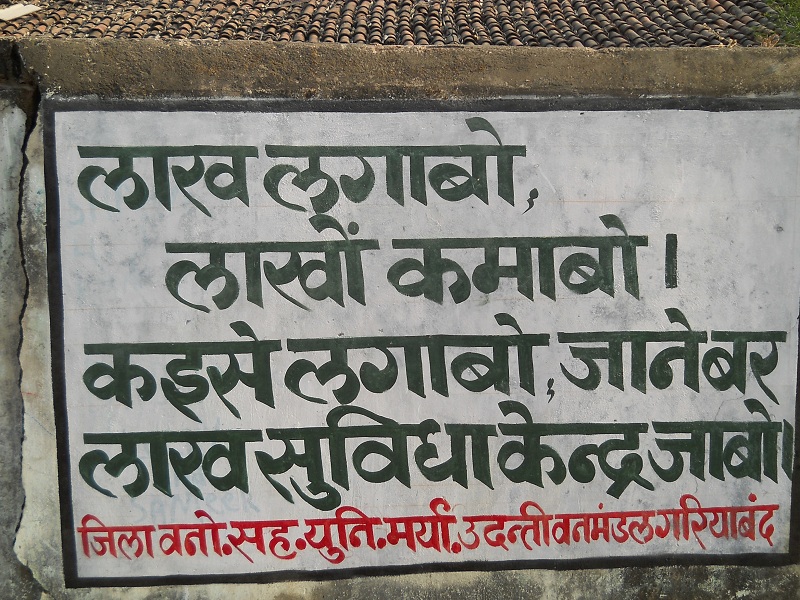 लाख लगाबो,
लाखों कमाबो।
कइसे लगाबो, जानेबर
लाख सुविधा केन्द्र जाबो।
जिला वनो. सह. युनि. मर्या. उदन्ती वनमंडल गरियाबंद